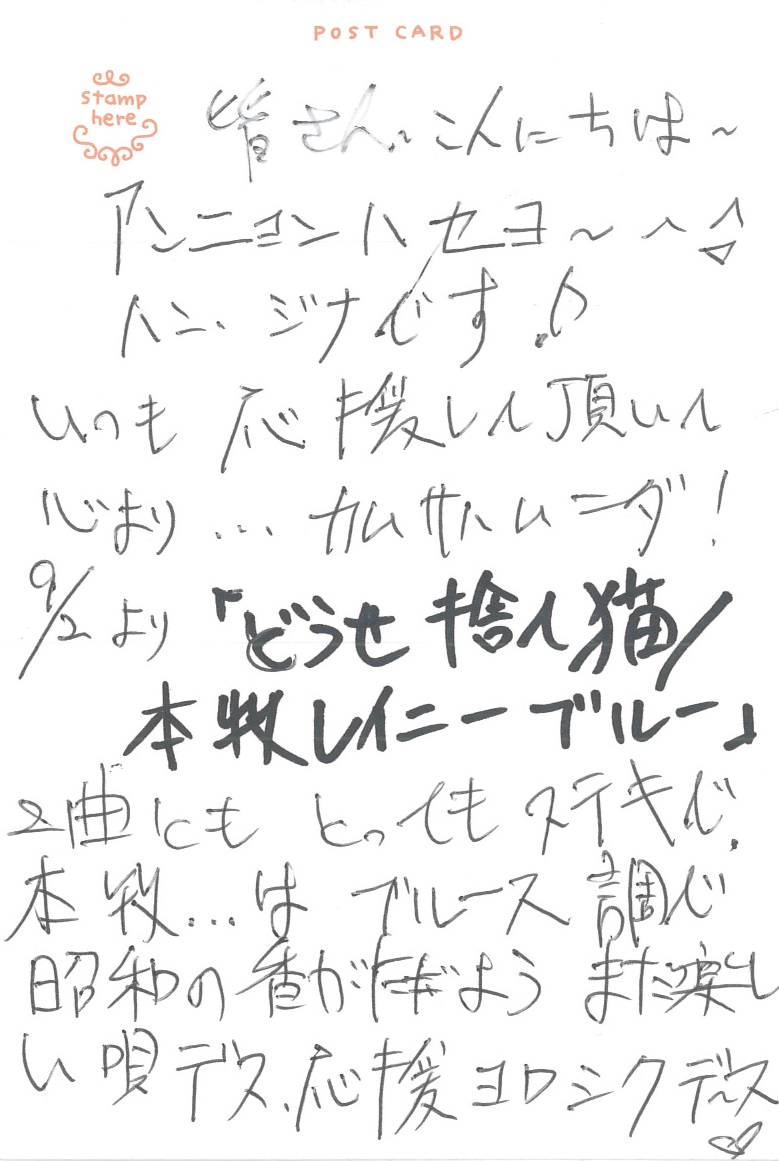 POST CARD
stamp
here
皆さん、こんにちは～
アンニョンハセヨ～^^
ハン・ジナです♪
いつも応援して頂いて
心より…カムサハムニダ!
9/2より「どうせ捨て猫/
本牧レイニーブルー」
2曲にもとってもステキで、
本牧…はブルース調で
昭和の香がただよう また楽し
い唄デス、応援ヨロシクデース♡